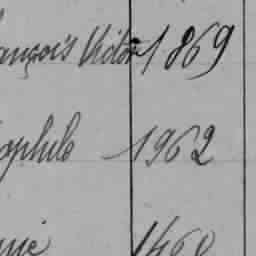 ançois Victor 1869
ophile 1962
nie 1460